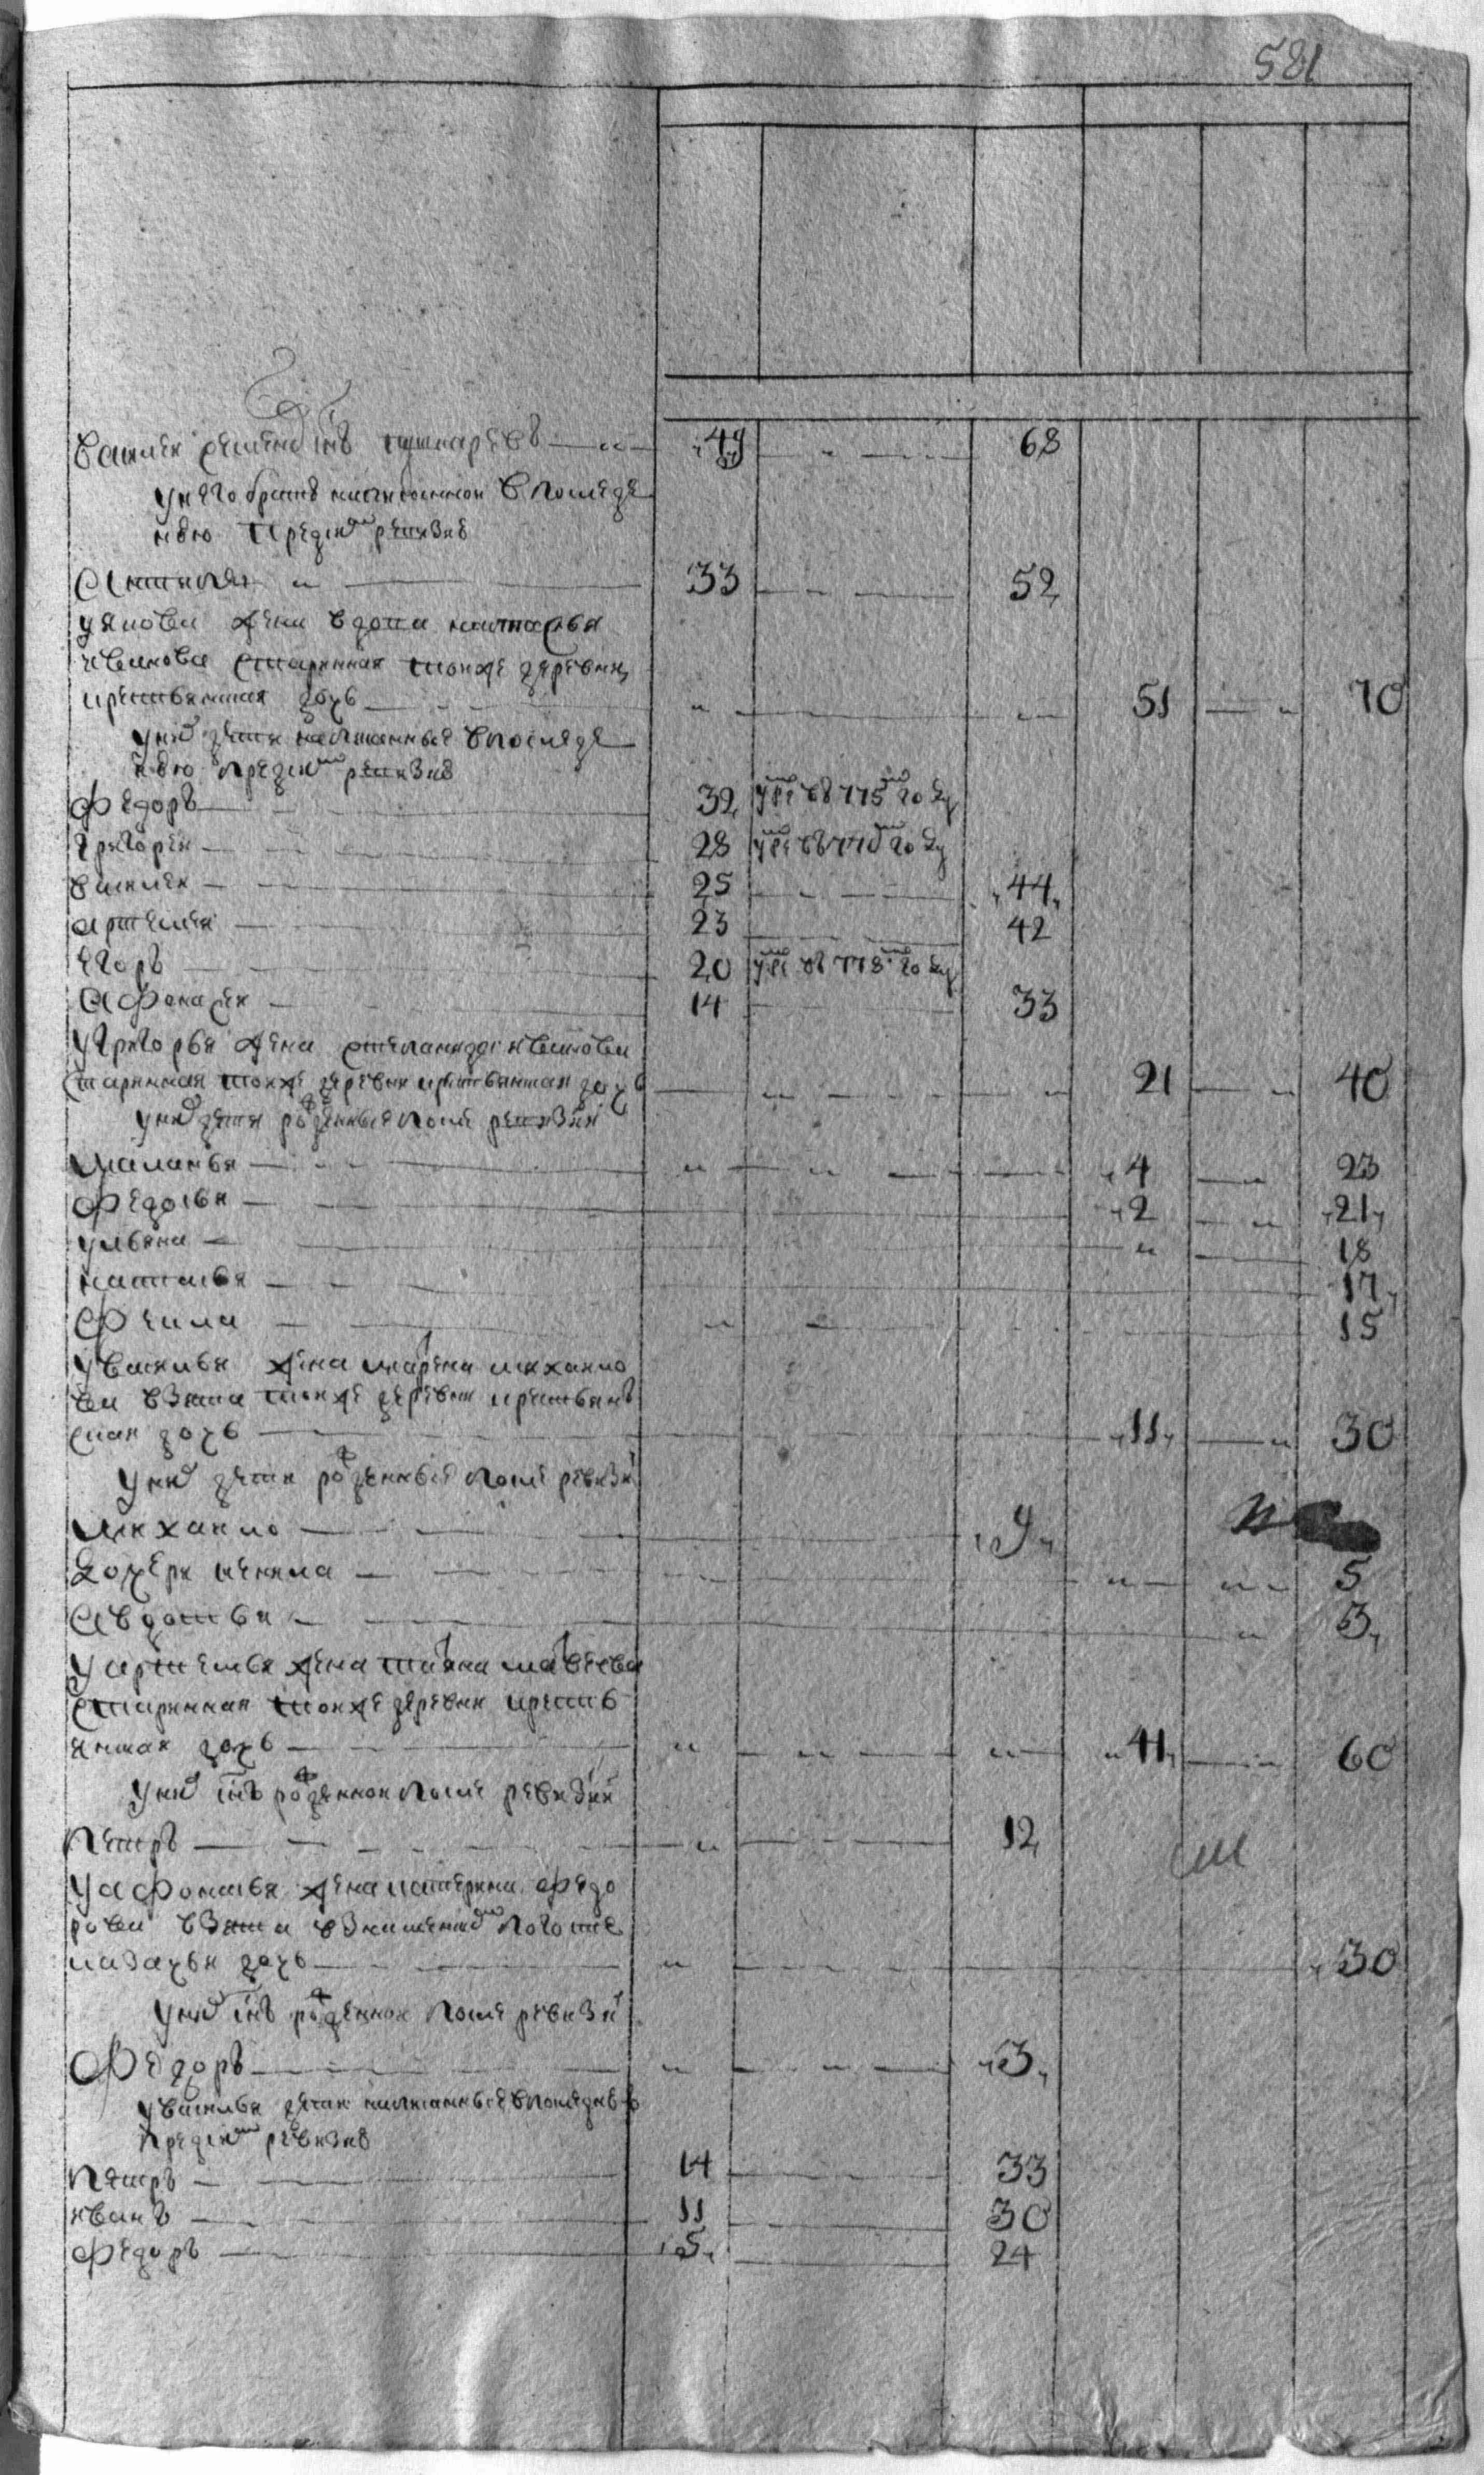 581
Василеи семенов снъ пушкаревъ 49 68
у него братъ написанной в последе
нѣю пред симъ ревизию
Антипъ 33 52
у якова жена вдова настасья
иванова старинная тоиже деревни
крестьянская дочь 51 70
у них дети написанные в последе
нѣю пред симъ ревизию
Федоръ 32 умре въ 775 году
григореи 28 умре въ 770 году
василеи 25 44
артемеи 23 42
егоръ 20 умре въ 778 году
Афонасеи 14 33
у григорья жена степанида иванова
старинная тоиже деревни крестьянская дочь 21 40
у них дети рожденные после ревизии
Маланья 4 23
Федосья 2 21
ульяна 18
наталья 17
Фекла 15
у василья жена марена михаило
ва взята тоиже деревни крестьянъ
ская дочь 11 30
у них дети рожденные после ревизии
Михаило 9
дочери 5
Авдотья 3
у артемья жена татьяна матвеева
старинная тоиже деревни кресть
янская дочь 41 60
у них снъ рожденной после ревизии
Петръ 12
у афонасья жена катерина федо
рова взята погосте
казачья дочь 30
у них снъ рожденной после ревизии
Федоръ 3
у василья дети написанные в последнѣю
пред симъ ревизию
Петръ 14 33
иванъ 11 30
федоръ 5 24